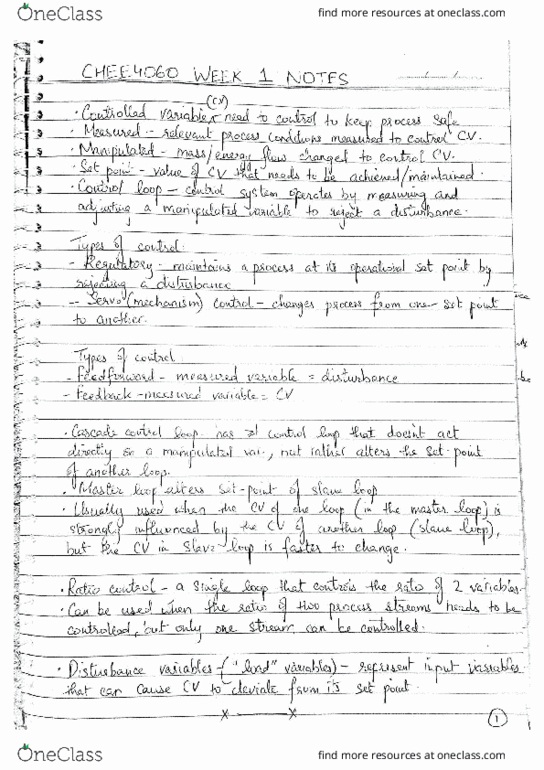 OneClass
find more resources at oneclass.com
CHEE4060 WEEK 1 NOTES
(CV)
· Controlled variable need to control to keep process safe
· Measured - relevant process conditions measured to control CV.
· Manipulated - mass/energy flow changed to control CV.
· Set point - value of CV that needs to be achieved/maintained.
· Control loop - control system operates by measuring and
adjusting a manipulated variable to reject a disturbance.
Types of control:
- Regulatory - maintains a process at its operational set point by
rejecting a disturbance
- Servo (mechanism) control - changes process from one set point
to another.
Types of control
- Feedforward - measured variable = disturbance
- Feedback - measured variable = CV
· Cascade control loop has ≥1 control loop that doesn't act
directly on a manipulated var., but rather alters the set-point
of another loop.
· Master loop alters set-point of slave loop
· Usually used when the CV of one loop (in the master loop) is
strongly influenced by the CV of another loop (slave loop),
but the CV in slave loop is faster to change.
· Ratio control - a single loop that controls the ratio of 2 variables.
· Can be used when the ratio of two process streams needs to be
controlled, but only one stream can be controlled.
· Disturbance variables - ("load" variables) - represent input variables
that can cause CV to deviate from its set point.
x x
1
OneClass
find more resources at oneclass.com